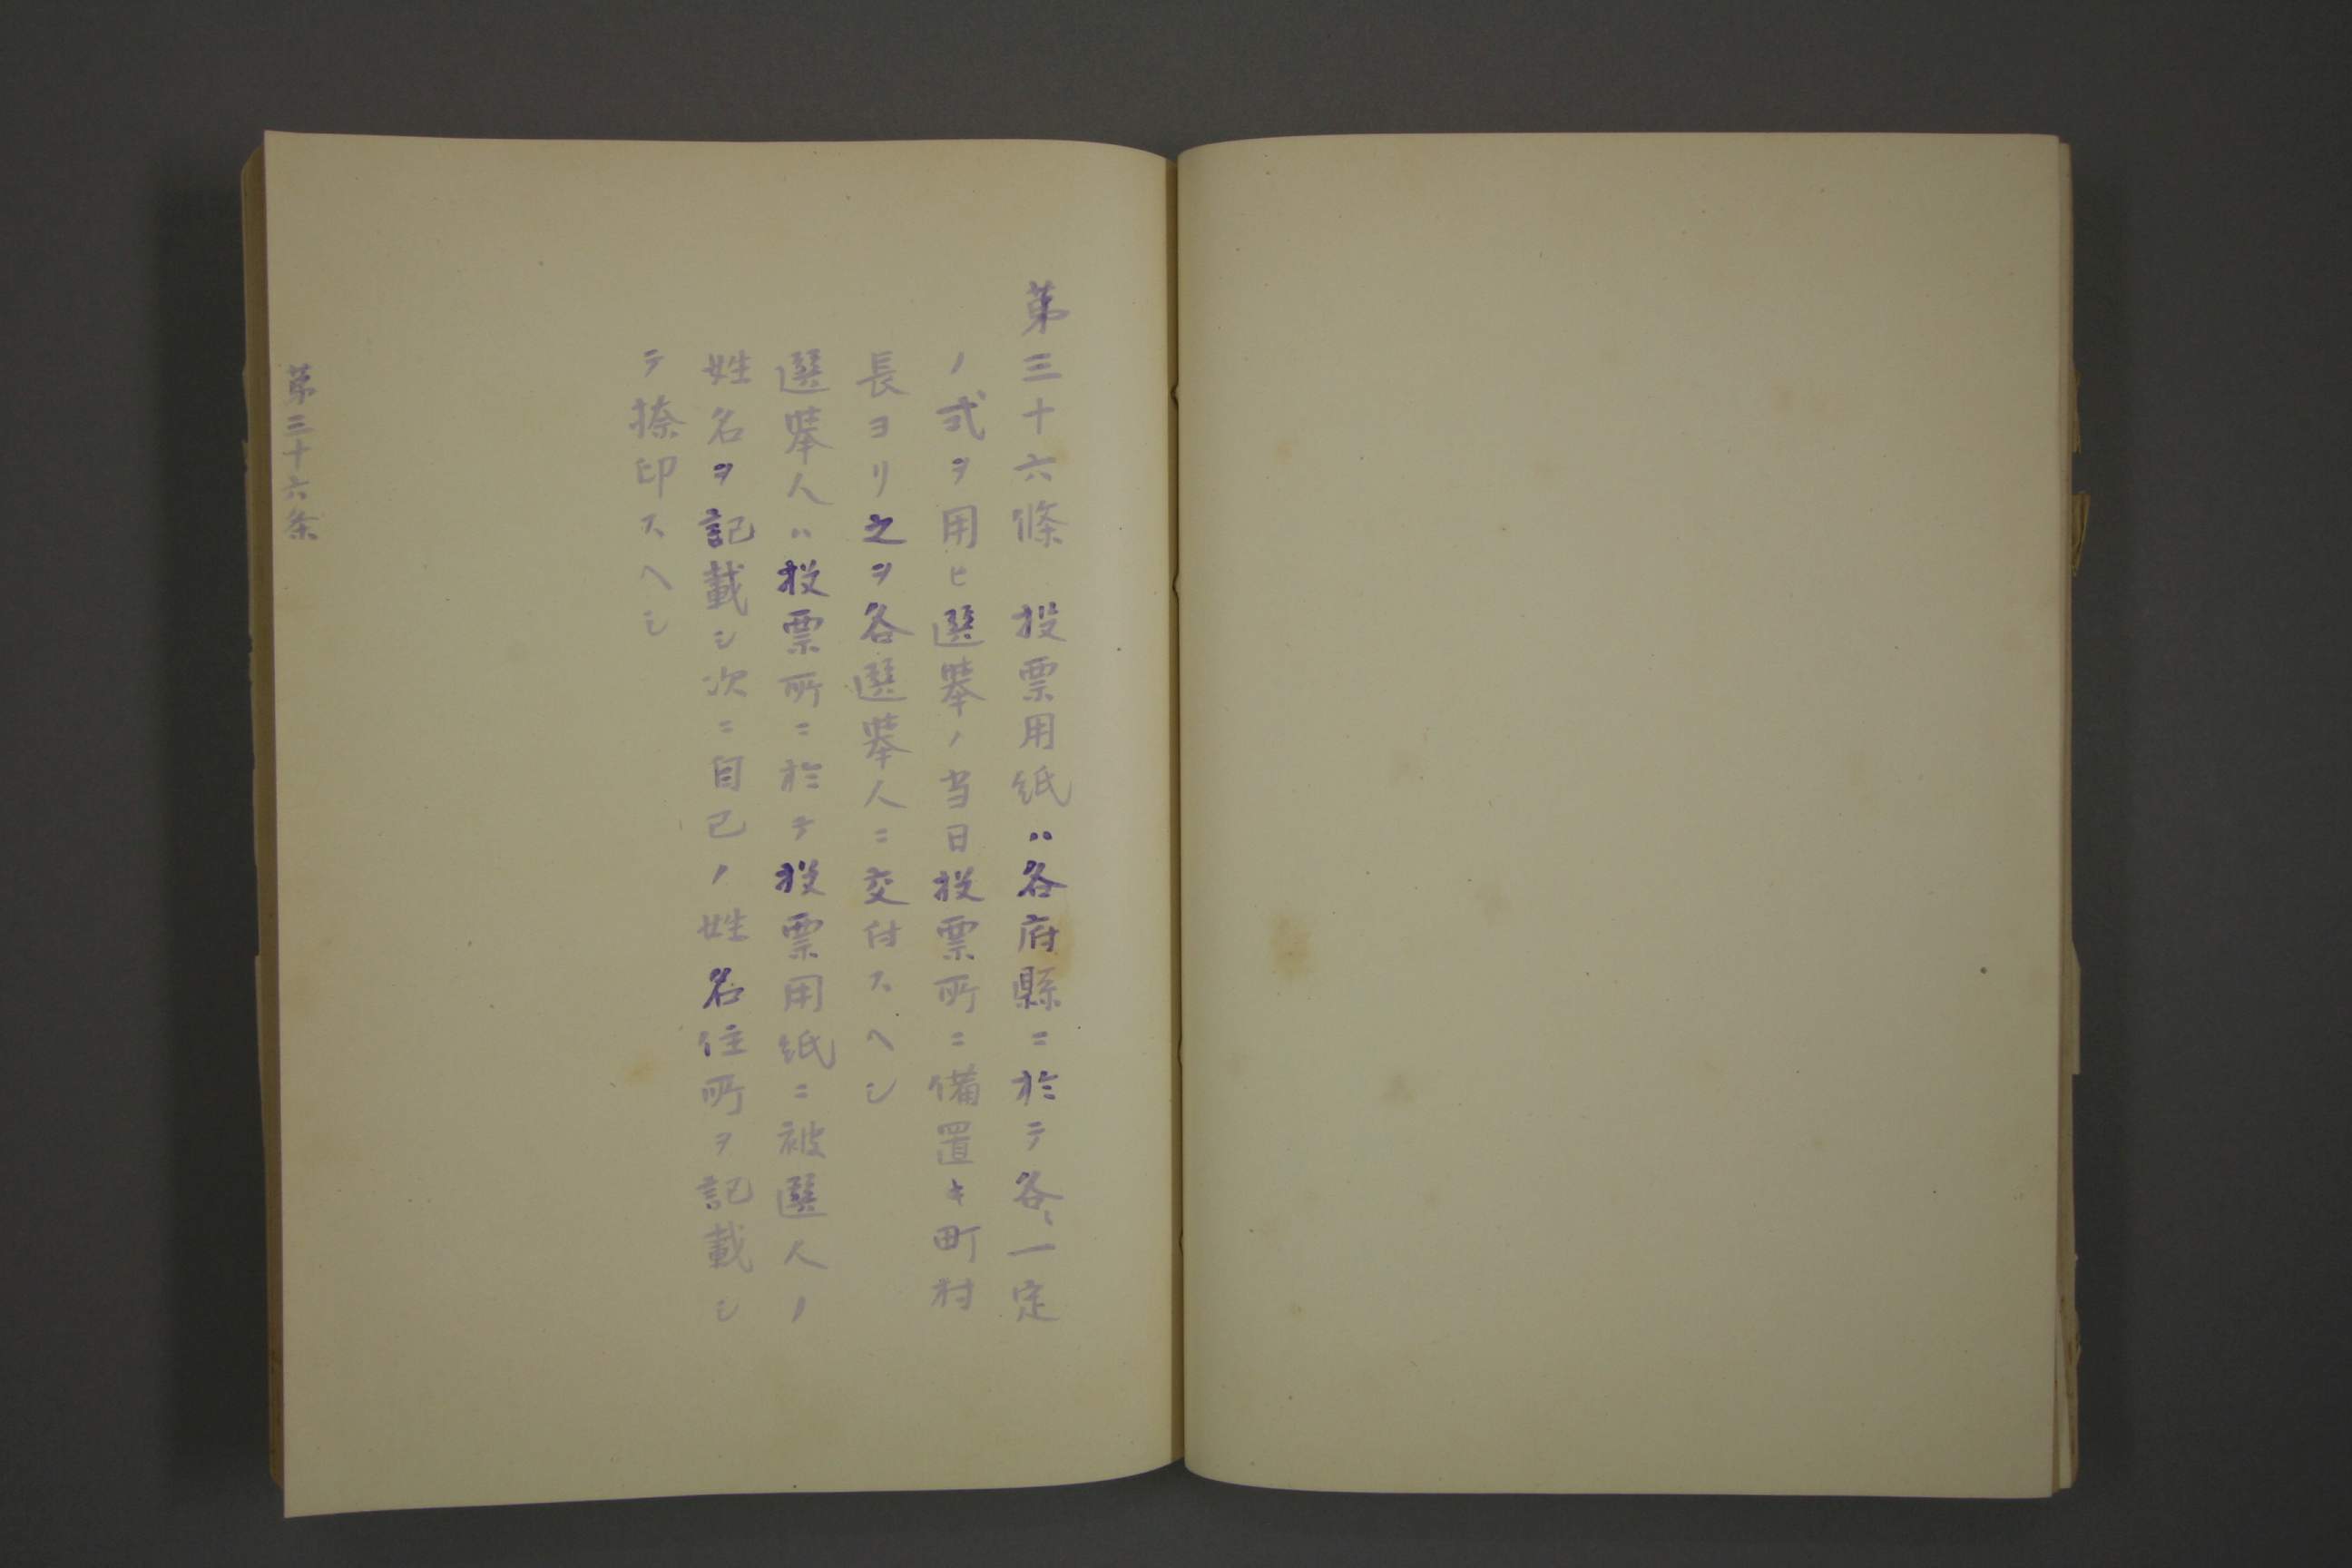 第三十六條　投票用紙ハ各府縣ニ於テ各〻一定
ノ式ヲ用ヒ選擧ノ当日投票所ニ備置キ町村
長ヨリ之ヲ各選擧人ニ交付スヘシ
選擧人ハ投票所ニ於テ投票用紙ニ被選人ノ
姓名ヲ記載シ次ニ自己ノ姓名住所ヲ記載シ
テ捺印スヘシ
第三十六条